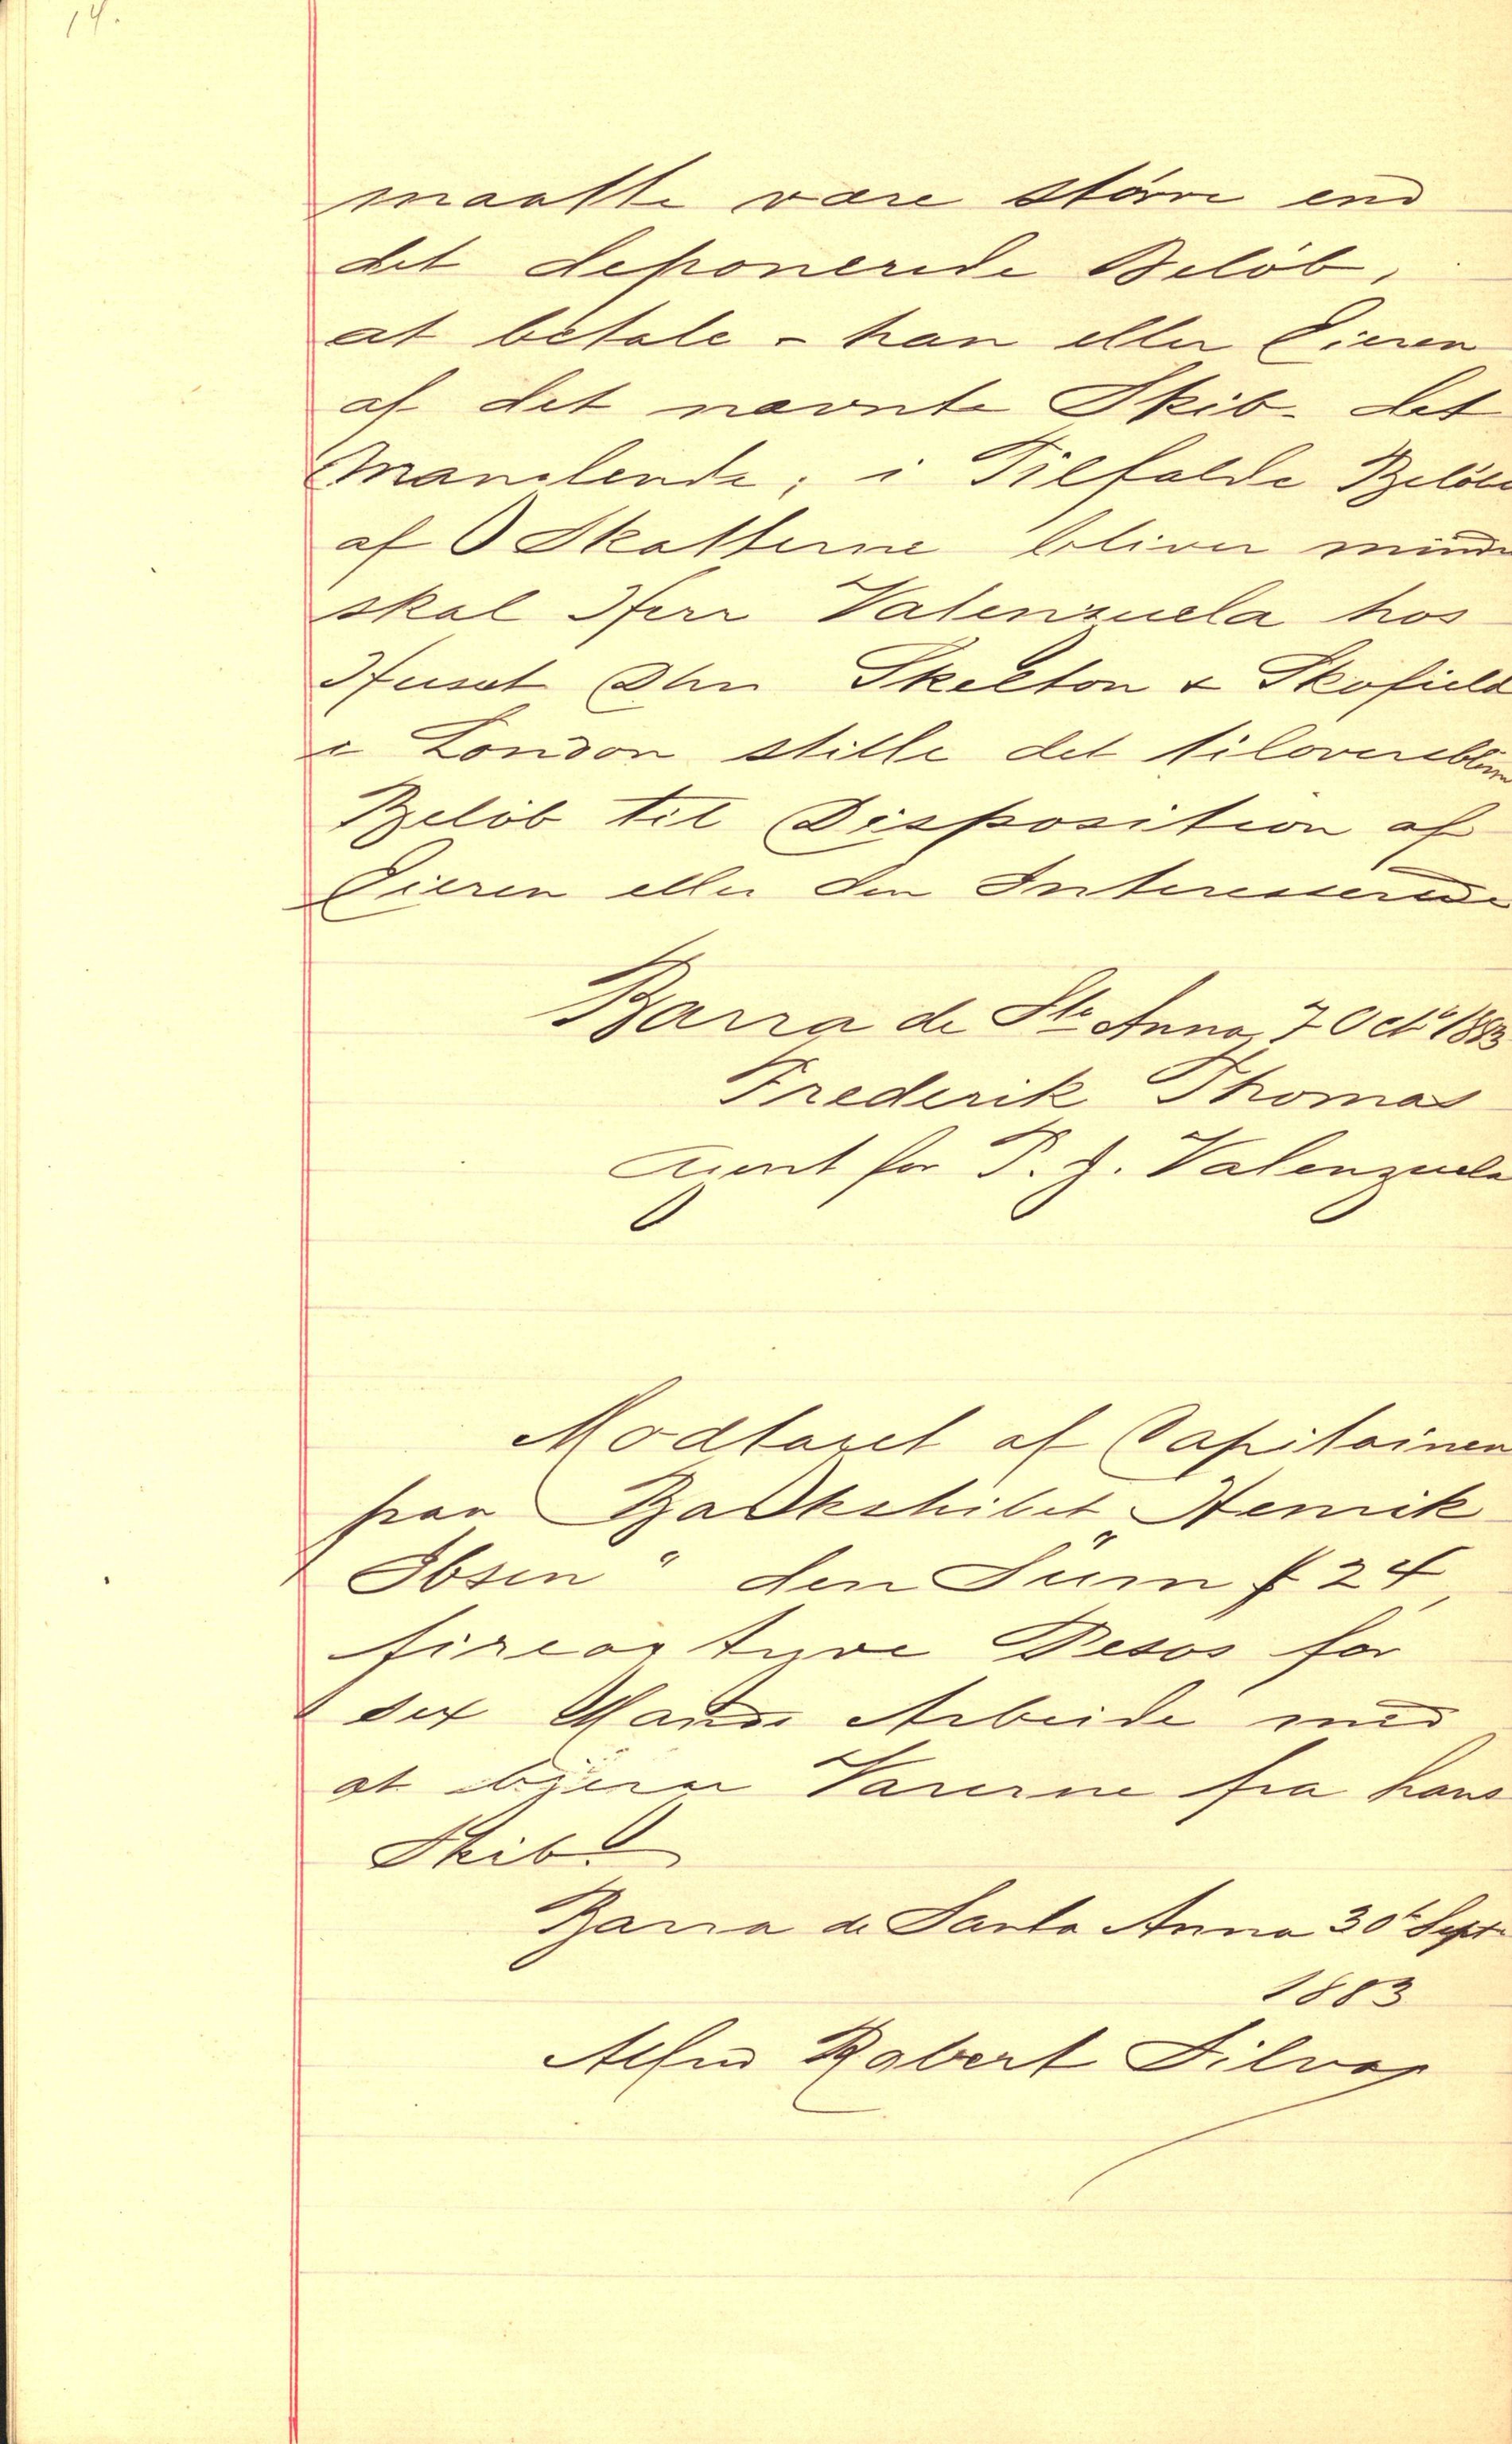 14.
maatte være större end
det deponerede Belöb,
at betale – han eller Eieren
af det nævnte Skib – det
Manglende; i Tilfælde Belöbet
af Skatterne bliver mindre
skal Herr Valenzuela hos
Huset Skelton & Skofield
i London stille det tiloversblevne
Belöb til Disposition af
Eieren eller den Interesserede
Barra de Sta Anna, 7 Oct 1883
Frederik Thomas
Agent for P. J. Valenzuela
Modtaget af Capitainen
paa Barkskibet „Henrik
Ibsen" den Sum $ 24,
fireogtyve Pesos for
sex Mands Arbeide med
at bjerge Varerne fra hans
Skib.
Barra de Santa Anna 30te Sept.
1883
Alfred Robert Silvas